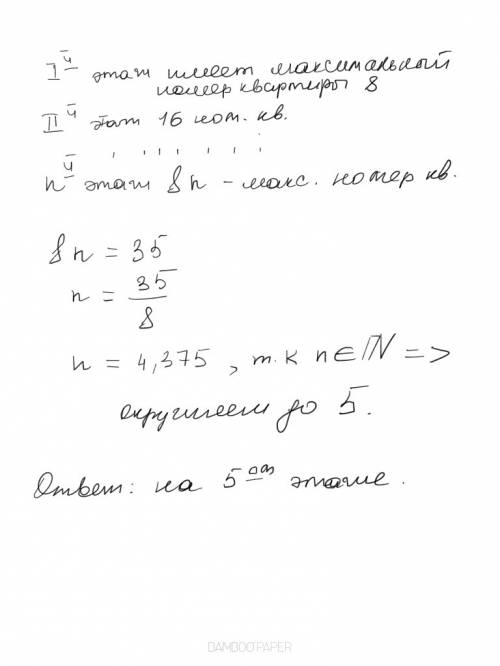 I й этаж имеет максимальный
номер квартиры 8
II й этаж 16 ном. кв.
n й этаж 8n - макс. номер кв.
8n = 35
n = 35/8
n = 4,375, т.к n∈ℕ =>
округляем до 5.
Ответ: на 5 ом этаже.
BAMBOOPAPER